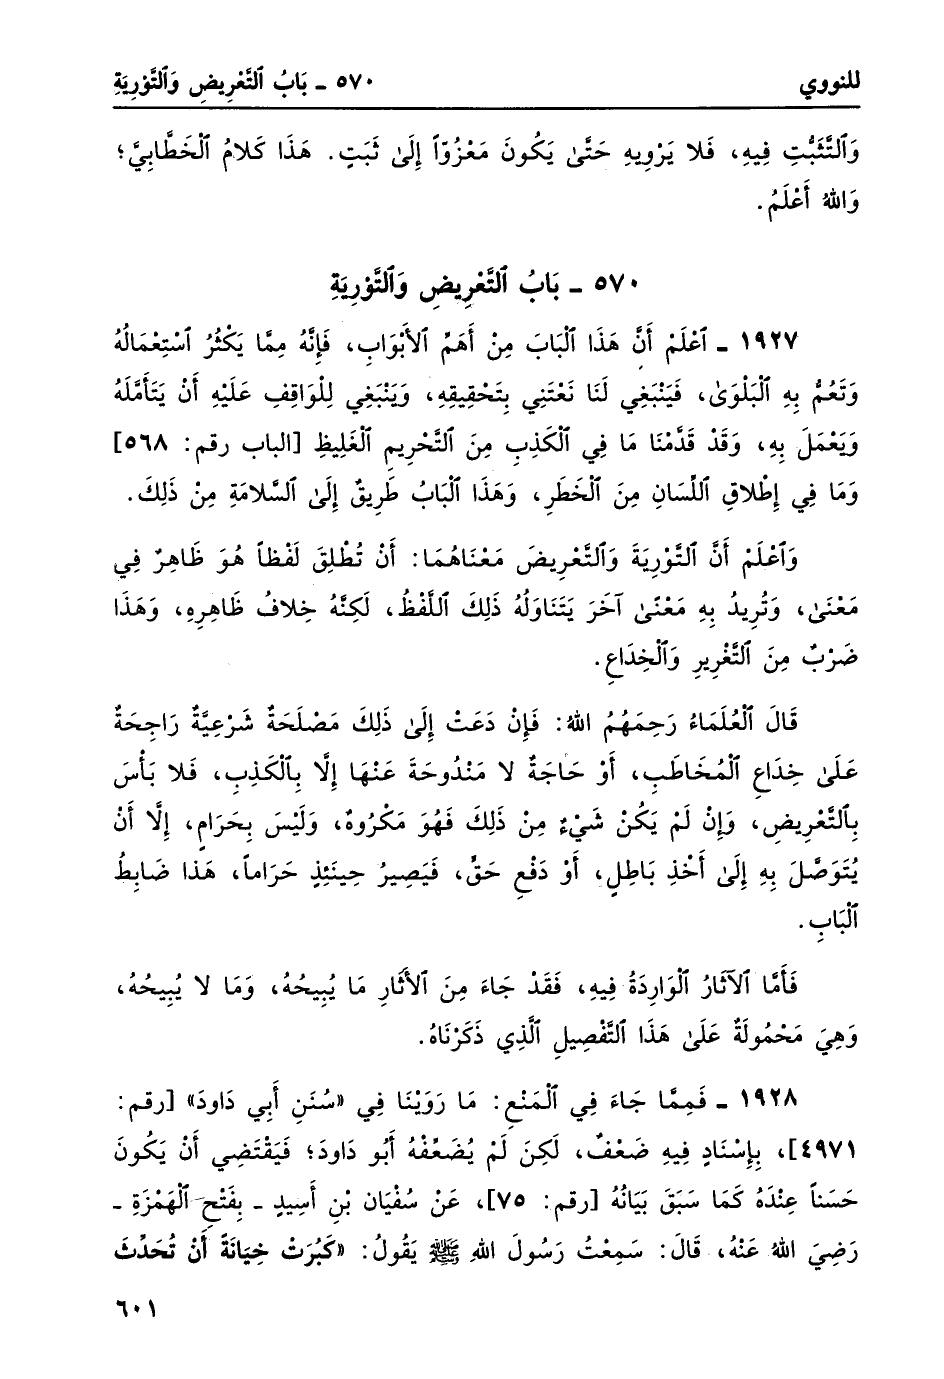 للنووي ٥٧٠ ـ بَابُ ٱلتَّعْرِيضِ وَٱلتَّوْرِيَةِ
وَٱلتَّثَبُّتِ فِيهِ، فَلا يَرْوِيهِ حَتَّىٰ يَكُونَ مَعْزُوّاً إِلَىٰ ثَبَتٍ. هَذَا كَلامُ ٱلْخَطَّابِيِّ؛
وَاللهُ أَعْلَمُ.
٥٧٠ ـ بَابُ ٱلتَّعْرِيضِ وَٱلتَّوْرِيَةِ
١٩٢٧ ـ ٱعْلَمْ أَنَّ هَذَا ٱلْبَابَ مِنْ أَهَمِّ ٱلأَبْوَابِ، فَإِنَّهُ مِمَّا يَكْثُرُ ٱسْتِعْمَالُهُ
وَتَعُمُّ بِهِ ٱلْبَلْوَىٰ، فَيَنْبَغِي لَنَا نَعْتَنِي بِتَحْقِيقِهِ، وَيَنْبَغِي لِلْوَاقِفِ عَلَيْهِ أَنْ يَتَأَمَّلَهُ
وَيَعْمَلَ بِهِ، وَقَدْ قَدَّمْنَا مَا فِي ٱلْكَذِبِ مِنَ ٱلتَّحْرِيمِ ٱلْغَلِيظِ [الباب رقم: ٥٦٨]
وَمَا فِي إِطْلاقِ ٱللِّسَانِ مِنَ ٱلْخَطَرِ، وَهَذَا ٱلْبَابُ طَرِيقٌ إِلَىٰ ٱلسَّلامَةِ مِنْ ذَلِكَ.
وَٱعْلَمْ أَنَّ ٱلتَّوْرِيَةَ وَٱلتَّعْرِيضَ مَعْنَاهُمَا: أَنْ تُطْلِقَ لَفْظاً هُوَ ظَاهِرٌ فِي
مَعْنَىٰ، وَتُرِيدُ بِهِ مَعْنًىٰ آخَرَ يَتَنَاوَلُهُ ذَلِكَ ٱللَّفْظُ، لَكِنَّهُ خِلافُ ظَاهِرِهِ، وَهَذَا
ضَرْبٌ مِنَ ٱلتَّغْرِيرِ وَٱلْخِدَاعِ.
قَالَ ٱلْعُلَمَاءُ رَحِمَهُمُ اللهُ: فَإِنْ دَعَتْ إِلَىٰ ذَلِكَ مَصْلَحَةٌ شَرْعِيَّةٌ رَاجِحَةٌ
عَلَىٰ خِدَاعِ ٱلْمُخَاطَبِ، أَوْ حَاجَةٌ لا مَنْدُوحَةَ عَنْهَا إِلَّا بِٱلْكَذِبِ، فَلا بَأْسَ
بِٱلتَّعْرِيضِ، وَإِنْ لَمْ يَكُنْ شَيْءٌ مِنْ ذَلِكَ فَهُوَ مَكْرُوهٌ، وَلَيْسَ بِحَرَامٍ، إِلَّا أَنْ
يُتَوَصَّلَ بِهِ إِلَىٰ أَخْذِ بَاطِلٍ، أَوْ دَفْعِ حَقٍّ، فَيَصِيرُ حِينَئِذٍ حَرَاماً، هَذَا ضَابِطُ
ٱلْبَابِ.
فَأَمَّا ٱلآثَارُ ٱلْوَارِدَةُ فِيهِ، فَقَدْ جَاءَ مِنَ ٱلأَثَارِ مَا يُبِيحُهُ، وَمَا لا يُبِيحُهُ،
وَهِيَ مَحْمُولَةٌ عَلَىٰ هَذَا ٱلتَّفْصِيلِ ٱلَّذِي ذَكَرْنَاهُ.
١٩٢٨ ـ فَمِمَّا جَاءَ فِي ٱلْمَنْعِ: مَا رَوَيْنَا فِي «سُنَنِ أَبِي دَاودَ» [رقم:
٤٩٧١]، بِإِسْنَادٍ فِيهِ ضَعْفٌ، لَكِنْ لَمْ يُضَعِّفْهُ أَبُو دَاودَ؛ فَيَقْتَضِي أَنْ يَكُونَ
حَسَناً عِنْدَهُ كَمَا سَبَقَ بَيَانُهُ [رقم: ٧٥]، عَنْ سُفْيَان بْنِ أَسِيدٍ ـ بِفَتْحِ ٱلْهَمْزَةِ ـ
رَضِيَ اللهُ عَنْهُ، قَالَ: سَمِعْتُ رَسُولَ اللهِ ﷺ يَقُولُ: «كَبُرَتْ خِيَانَةً أَنْ تُحَدِّثَ
٦٠١